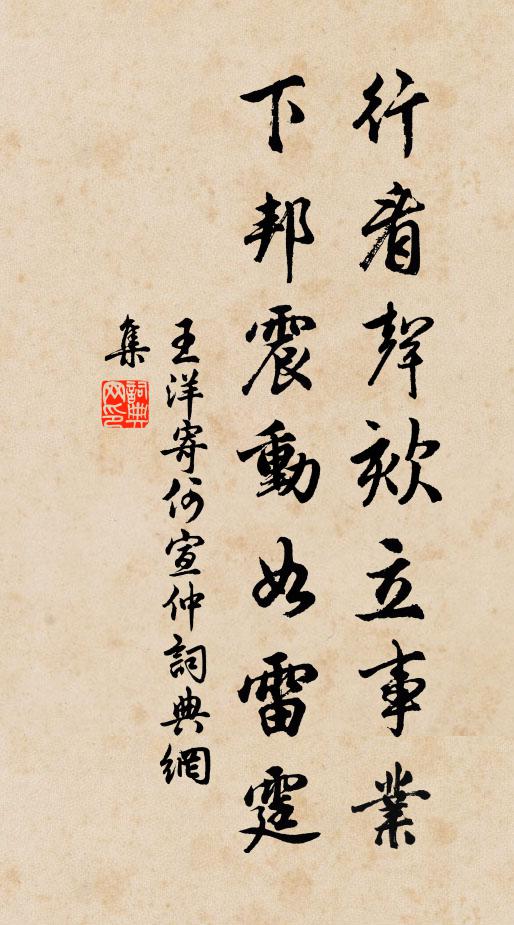 行看聲欬立事業
下邦震動如雷霆
王洋寄何宣仲詞典網
集
詞典
网印